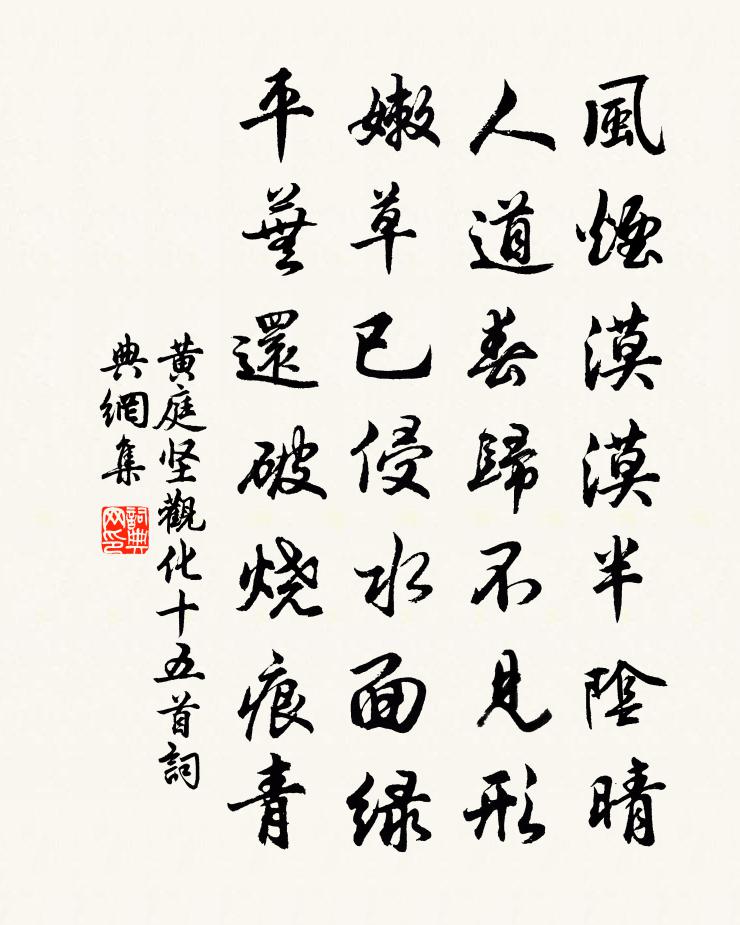 風煙漠漠半陰晴
人道春歸不見形
嫩草已侵水面綠
平蕪還破燒痕青
黄庭坚觀化十五首詞
典網集
詞典
网印